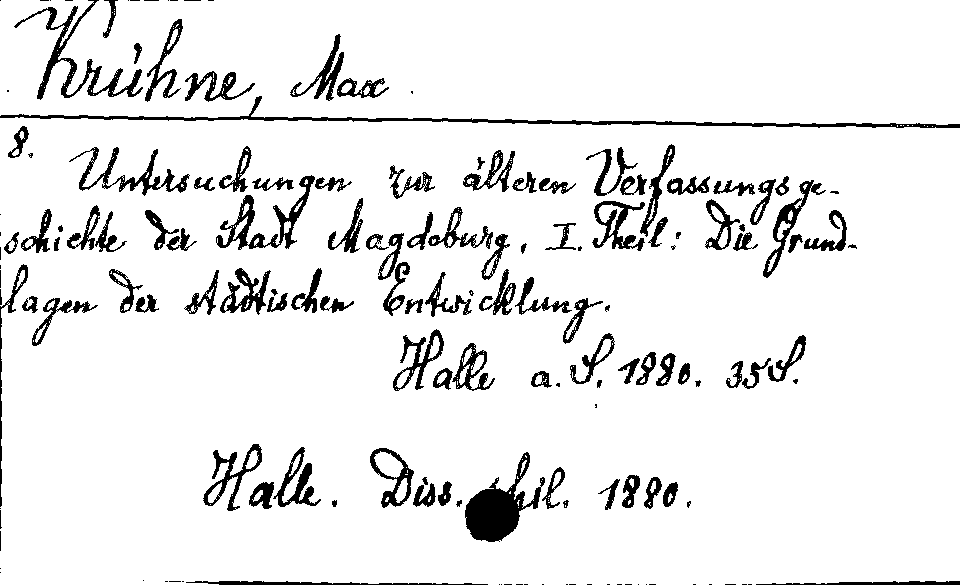 Krühne, Max
8.
Untersuchungen zur älteren Verfassungsge-
schichte der Stadt Magdeburg. I. Theil: Die Grund-
lagen der städtischen Entwicklung.
Halle a. S. 1880. 35 S.
Halle. Diss. phil. 1880.